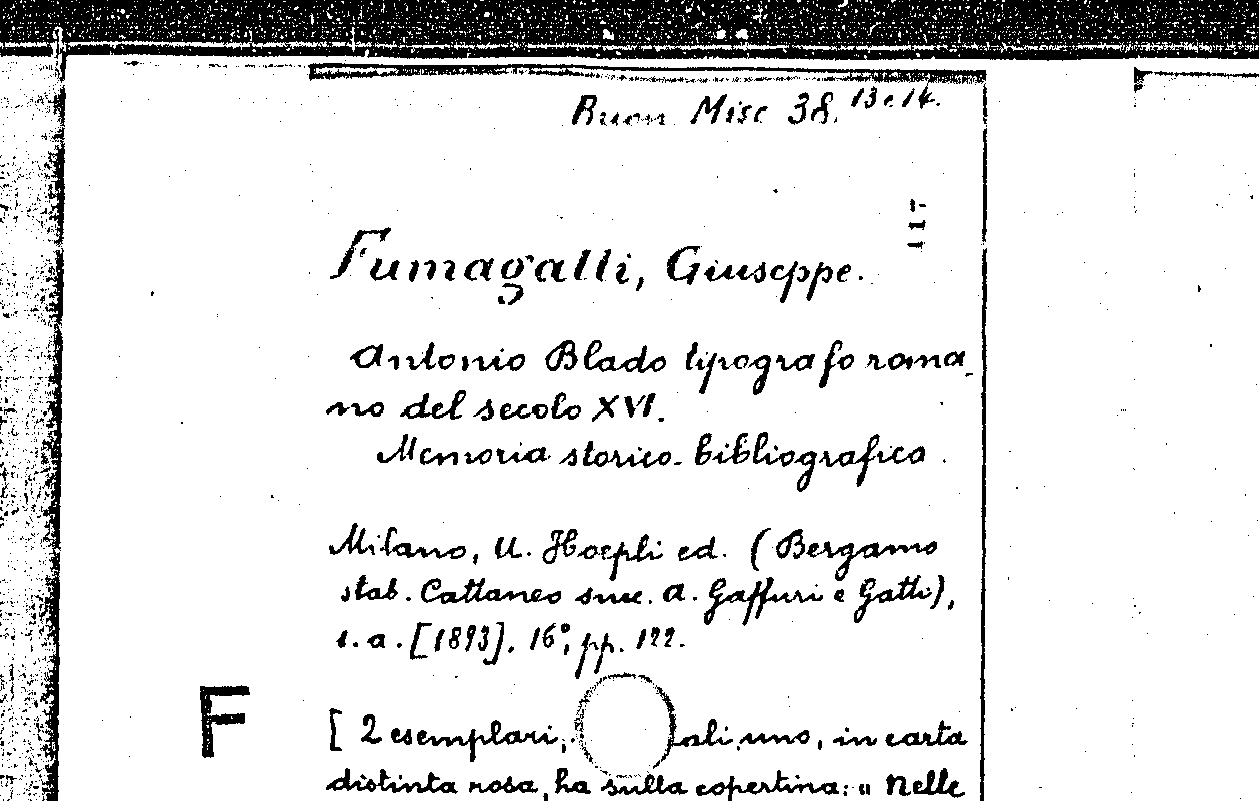 Buon Misc 38. 13 e 14.
117
Fumagalli, Giuseppe.
Antonio Blado tipografo roma-
no del secolo XVI.
Memoria storico-bibliografica.
Milano, U. Hoepli ed. (Bergamo
stab. Cattaneo succ. A. Gaffuri e Gatti),
s. a. [1893]. 16°, pp. 122.
F
[ 2 esemplari, uno, in carta
distinta rosa, ha sulla copertina: « Nelle